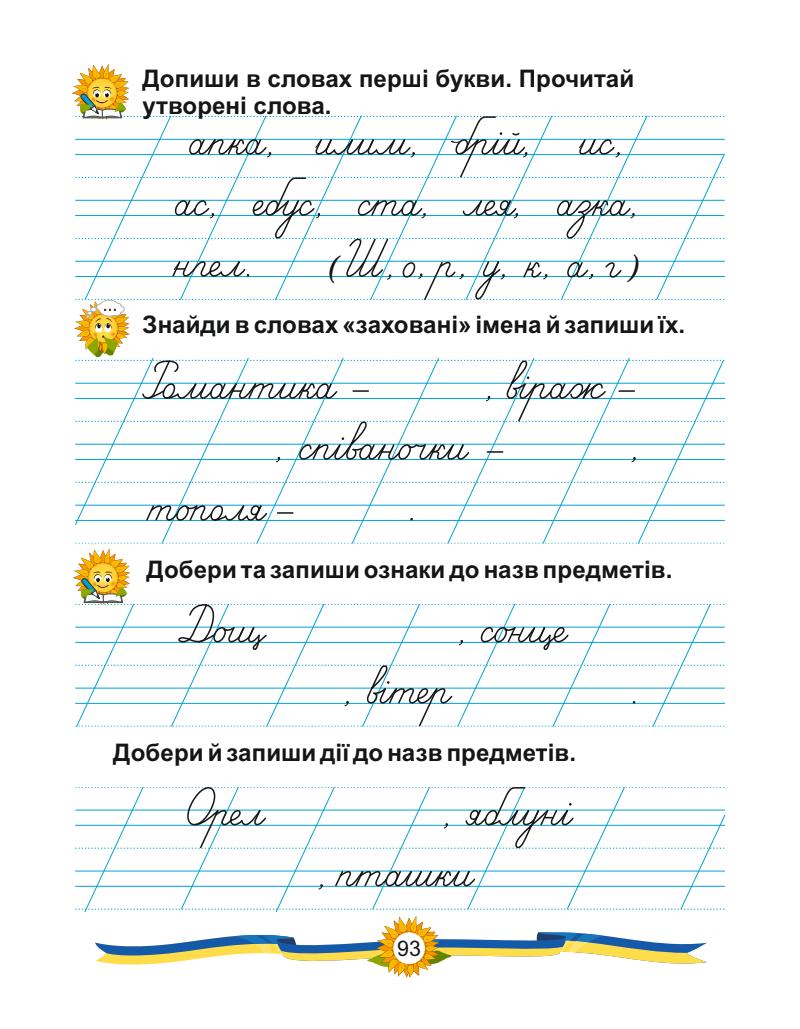 Допиши в словах перші букви. Прочитай
утворені слова.
апка, илим, брій, ис,
ас, ебус, ста, лея, азка,
нгел. (Ш, о, р, у, к, а, г)
...
Знайди в словах «заховані» імена й запиши їх.
Романтика – , віраж –
, співаночки – ,
тополя – .
Добери та запиши ознаки до назв предметів.
Дощ , сонце
, вітер .
Добери й запиши дії до назв предметів.
Орел , яблуні
, пташки
93